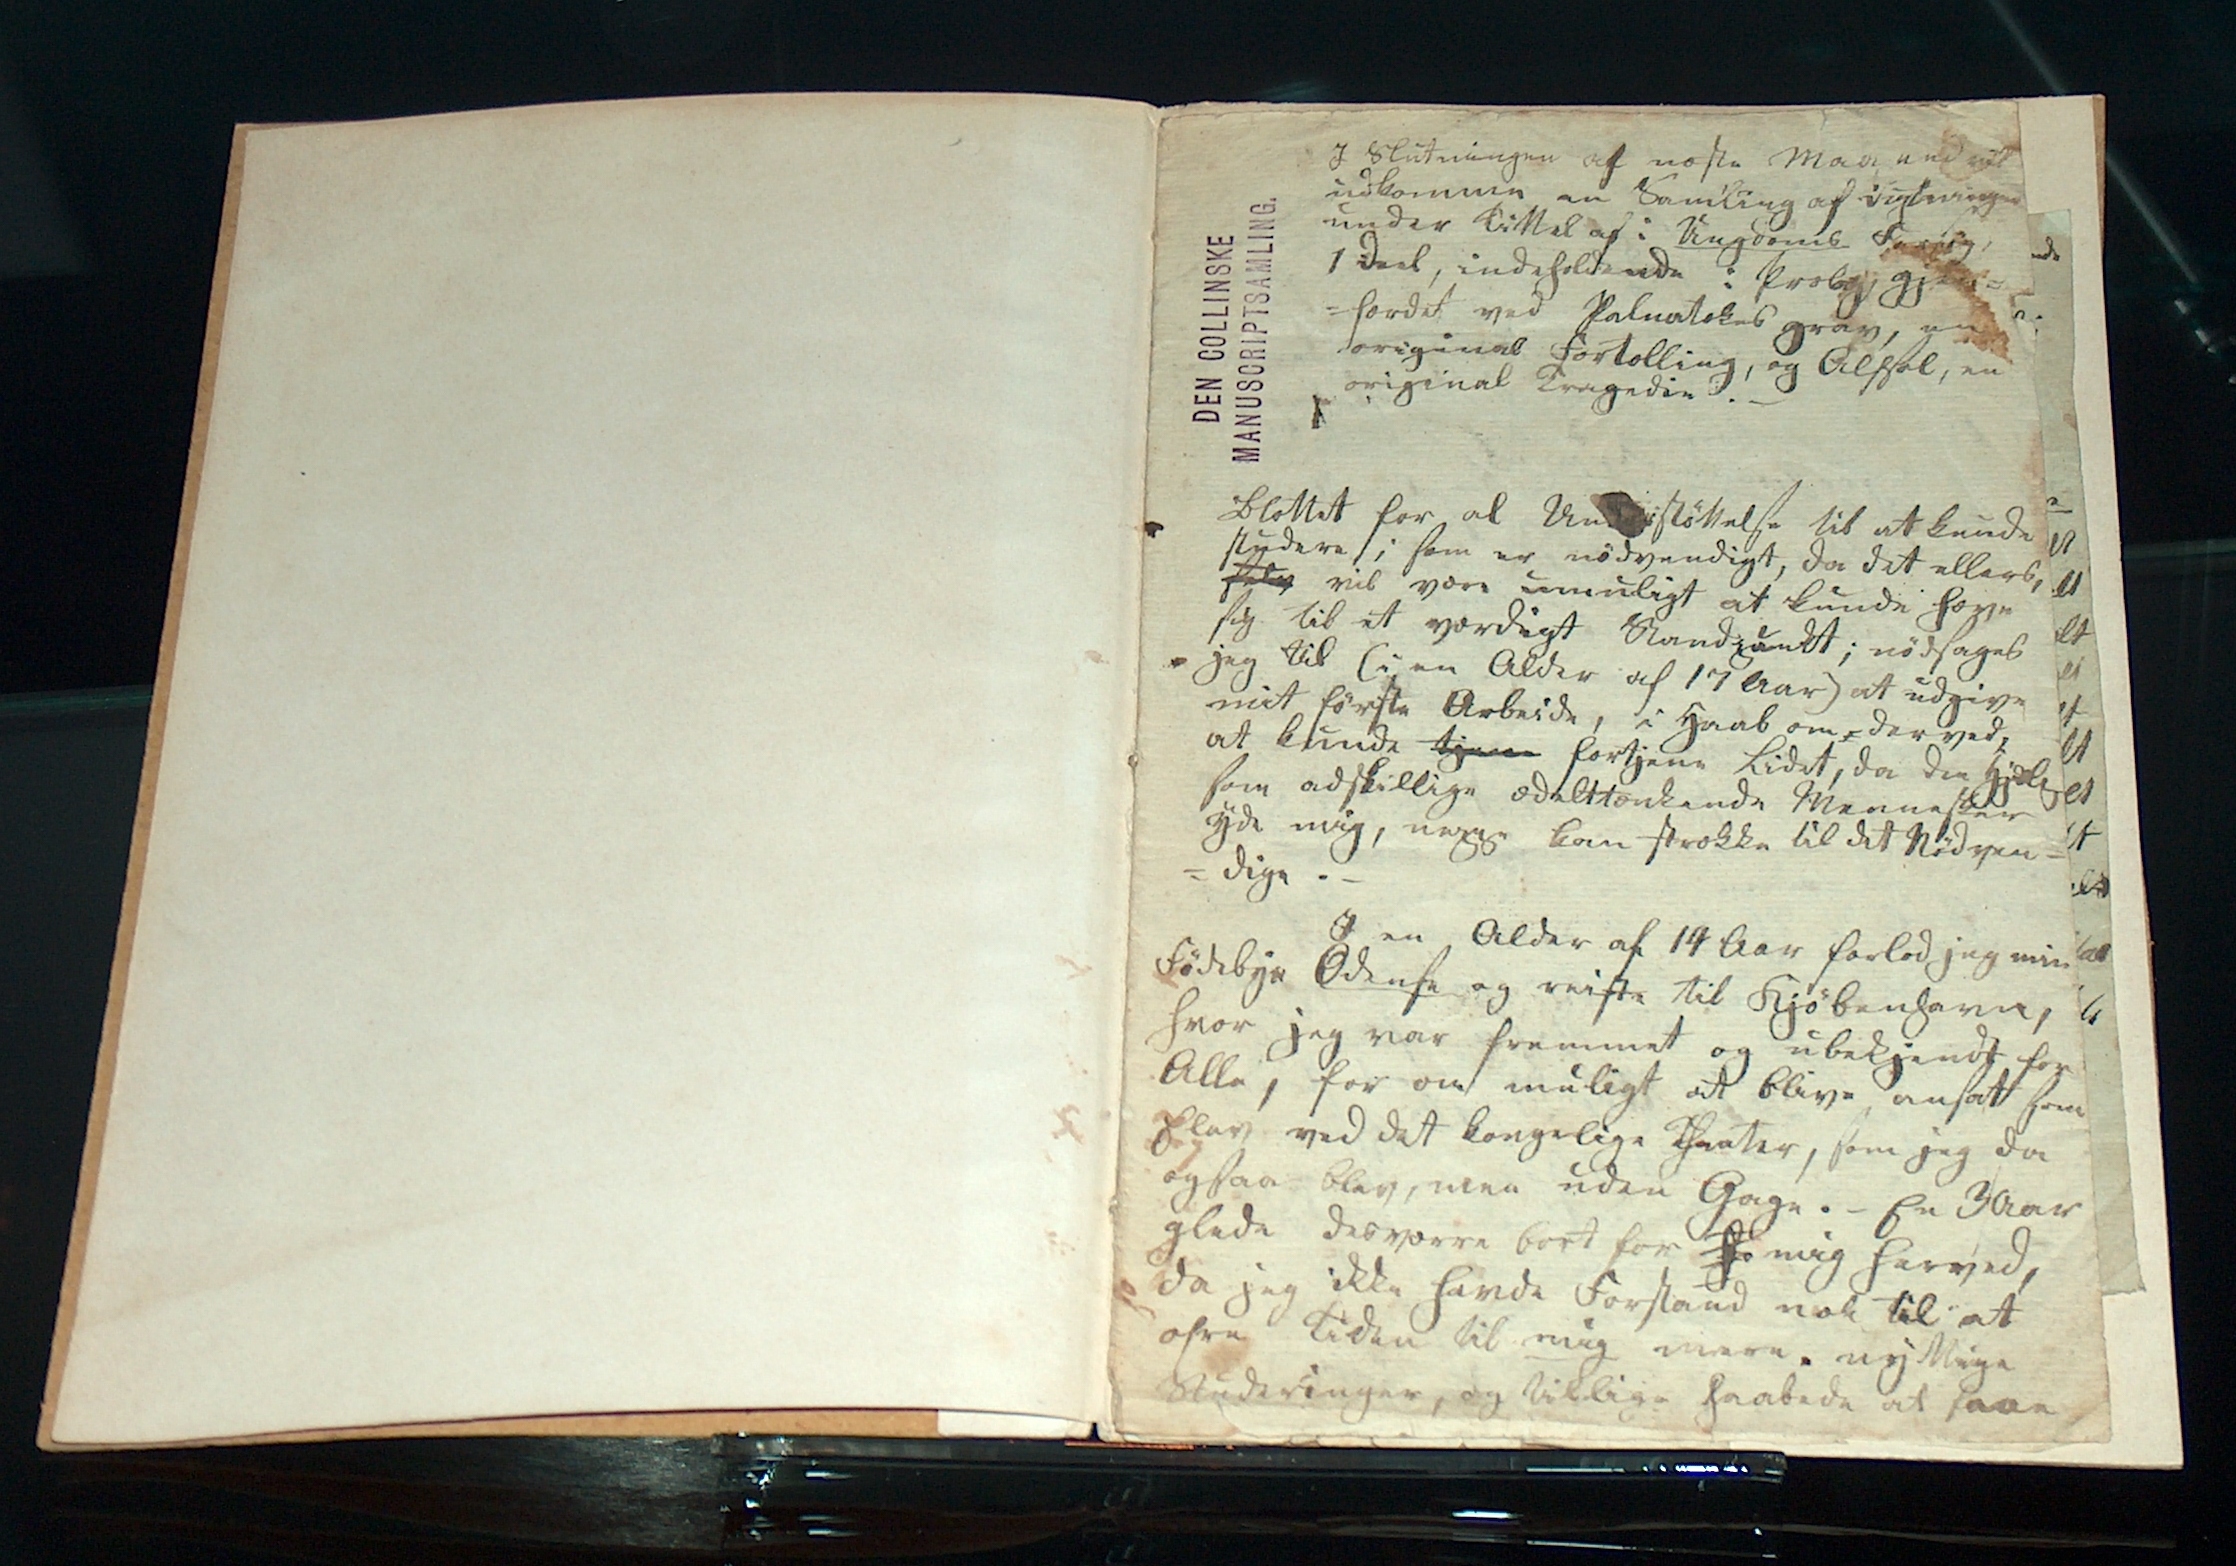 DEN COLLINSKE
MANUSCRIPTSAMLING.
I Slutningen af næste Maaned vil
udkomme en Samling af Digtninger
under Tittel af: Ungdoms Forsøg,
1 Deel, indeholdende: Prolog, gjen=
=færdet ved Palnatokes grav, en
original Fortælling, og Alfsol, en
original Tragedie. —
Blottet for al Understöttelse til at kunde
studere; som er nödvendigt, da det ellers,
selv vil være umuligt at kunde hæve
sig til et værdigt Standpunkt; nödsages
jeg til (i en Alder af 17 Aar) at udgive
mit förste Arbeide, i Haab om derved,
at kunde tjene fortjene Lidet, da den Hjælp
som adskillige ædelttænkende Mennesker
yde mig, neppe kan strække til det Nödven=
=dige. —
I en Alder af 14 Aar forlod jeg min
Födebye Odense og reiste til Kjöbenhavn,
hvor jeg var fremmet og ubekjendt for
Alle, for om muligt at blive ansat som
Elev ved det kongelige Theater, som jeg da
ogsaa blev, men uden Gage. — En 3 Aar
glede desværre bort for mig herved,
da jeg ikke havde Forstand nok til at
ofre Tiden til mig mere nyttige
Studeringer, og tillige haabede at faae